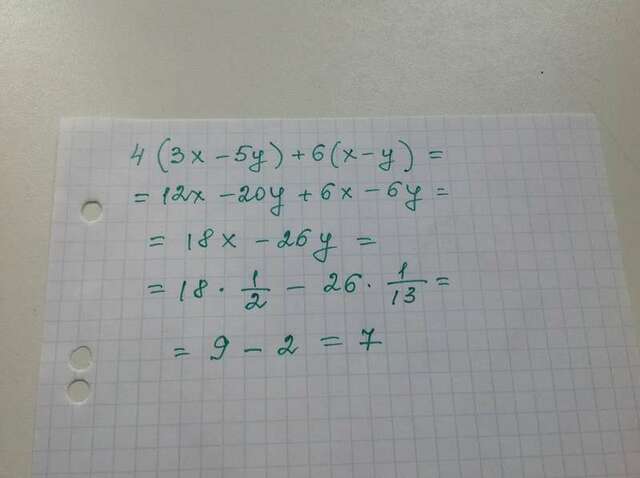 4(3x-5y)+6(x-y)=
=12x-20y+6x-6y=
=18x-26y=
=18·1/2-26·1/13=
=9-2=7